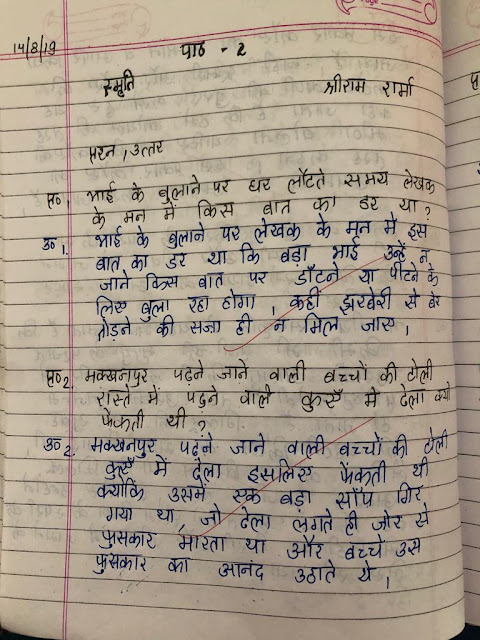 14/8/19 पाठ - 2
स्मृति श्रीराम शर्मा
प्रश्न, उत्तर
प्र०1. भाई के बुलाने पर घर लौटते समय लेखक
के मन में किस बात का डर था?
उ०1. भाई के बुलाने पर लेखक के मन में इस
बात का डर था कि बड़ा भाई उन्हें न
जाने किस बात पर डाँटने या पीटने के
लिए बुला रहा होगा, कहीं झरबेरी से बेर
तोड़ने की सजा ही न मिल जाए,
प्र०2. मक्खनपुर पढ़ने जाने वाली बच्चों की टोली
रास्ते में पड़ने वाले कुएँ में ढेला क्यों
फेंकती थी?
उ०2. मक्खनपुर पढ़ने जाने वाली बच्चों की टोली
कुएँ में ढेला इसलिए फेंकती थी
क्योंकि उसमें एक बड़ा साँप गिर
गया था, जो ढेला लगते ही जोर से
फुसकार मारता था और बच्चों उस
फुसकार का आनंद उठाते थे,